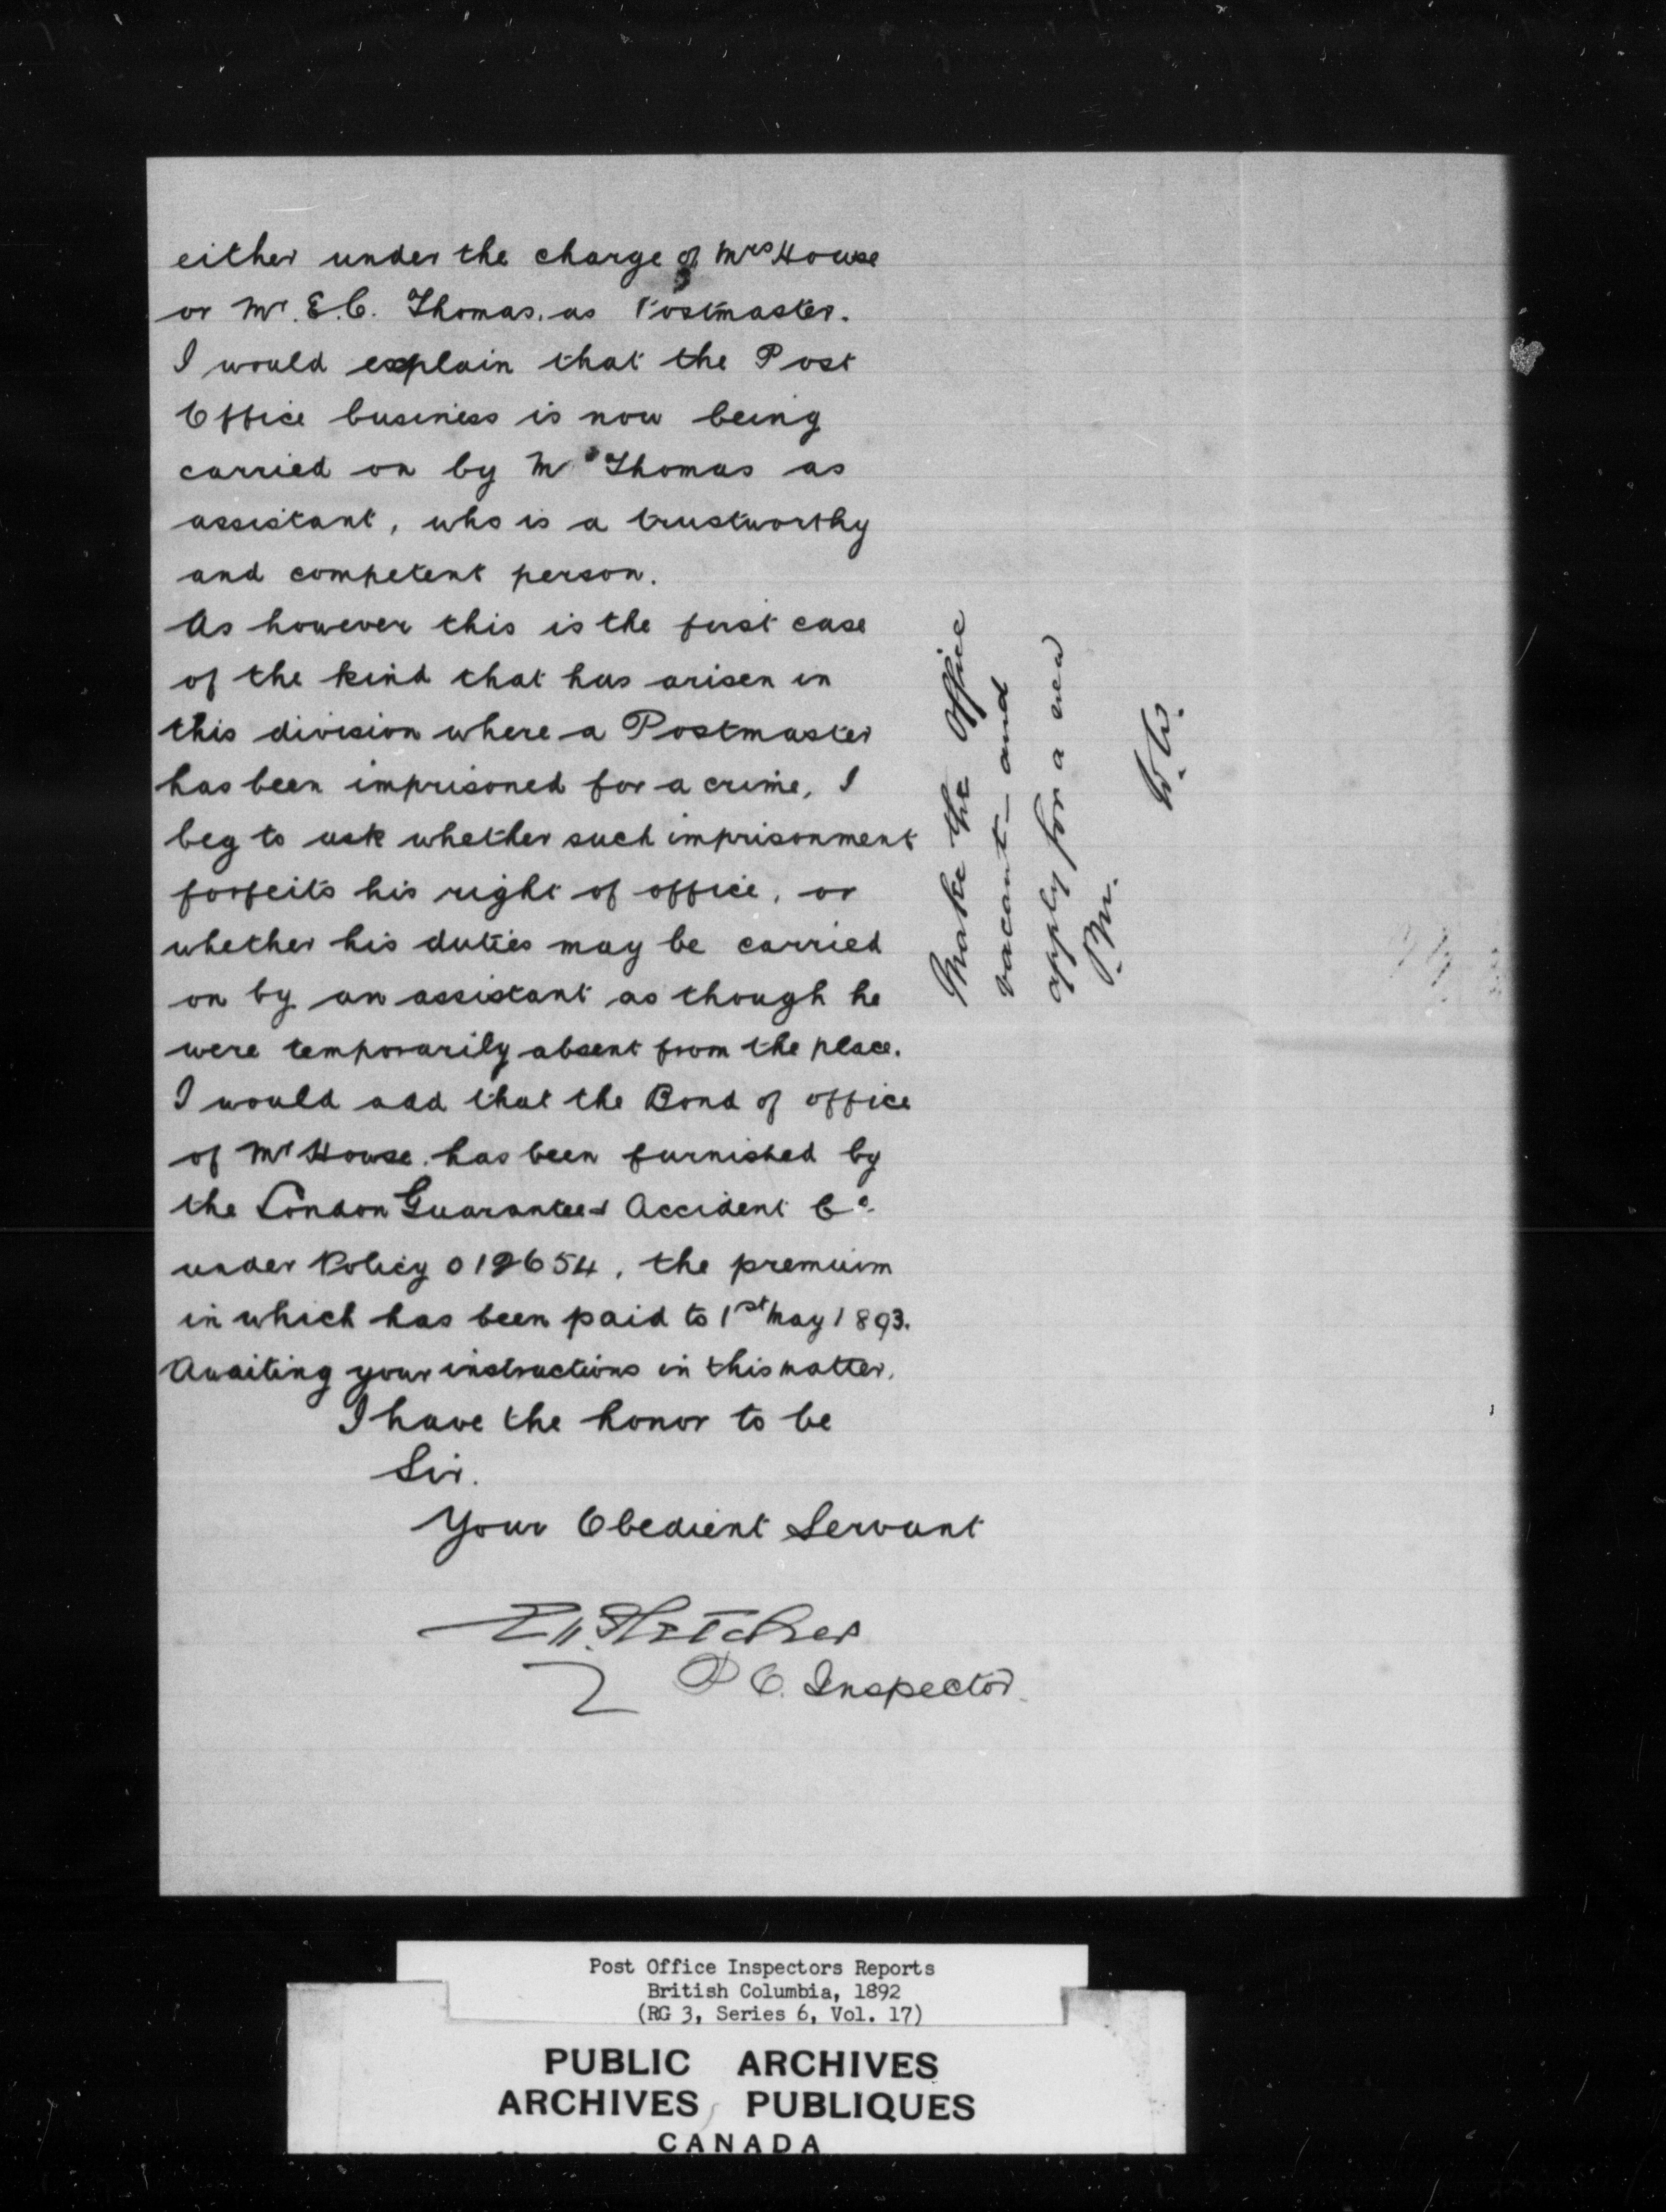 either under the charge of Mrs House
or Mr. E.C. Thomas, as Postmaster.
I would explain that the Post
Office business is now being
carried on by Mr Thomas as
assistant, who is a trustworthy
and competent person.
As however this is the first case
of the kind that has arisen in
this division where a Postmaster
has been imprisoned for a crime, I
beg to ask whether such imprisonment
forfeits his right of office, or
whether his duties may be carried
on by an assistant as though he
were temporarily absent from the place.
I would add that the Bond of office
of Mr House, has been furnished by
the London Guarantee & Accident Co.
under Policy 012654, the premuim
in which has been paid to 1st May 1893.
Awaiting your instructions in this matter.
I have the honor to be
Sir.
Your Obedient Servant
Fletcher
P O. Inspector.
Make the Office
vacant - and
apply for a new
P.M.
W.W.
Post Office Inspectors Reports
British Columbia, 1892
(RG 3, Series 6, Vol. 17)
PUBLIC ARCHIVES
ARCHIVES PUBLIQUES
CANADA